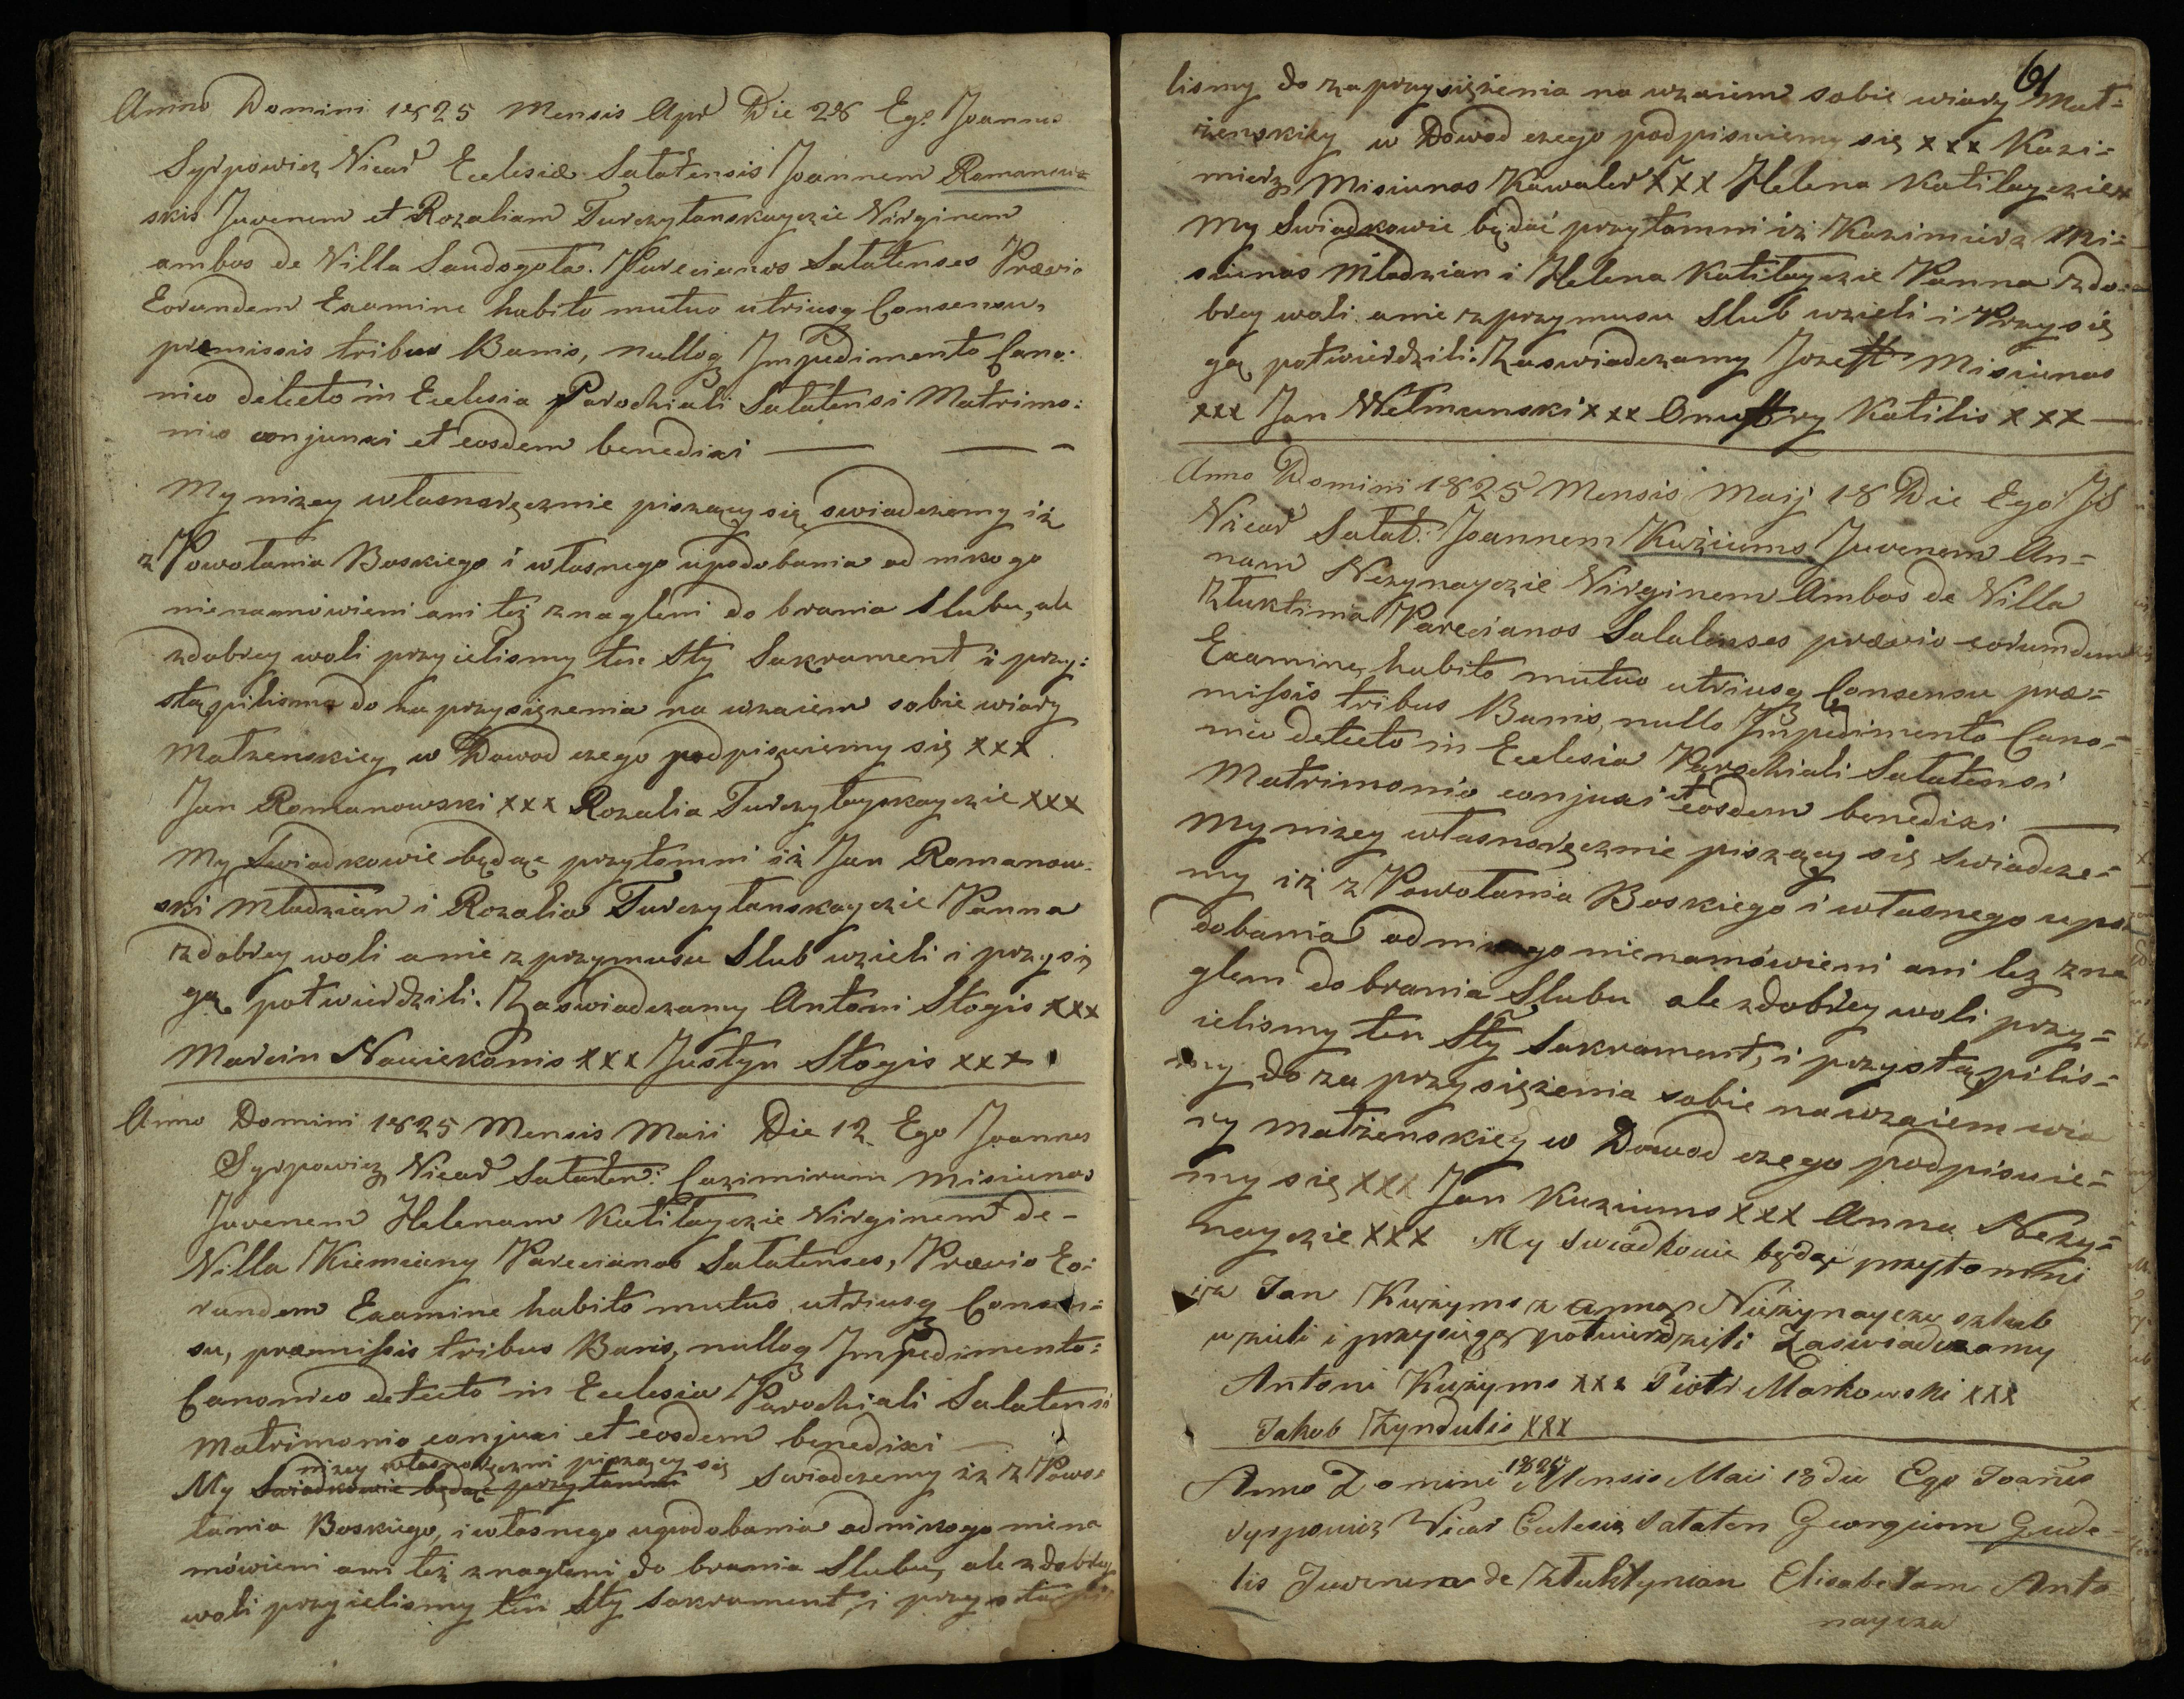 Anno Domini 1825 Mensis Apr Die 28 Ego Joannes
Syrpowicz Vicar Eclesiæ Satatensis Joannem Romanow=
skis Juvenem et Rozaliam Turczytanskayczie Virginem
ambos de Villa Saudogala. Parecianos Satatenses Prævio
Eorundem Examine habito mutuo utriusq Consensu,
premissis tribus Banis, nulloq Impedimento Cano:
nico detecto in Ecclesia Parochiali Satatensi Matrimo:
nio conjunxi et eosdem benedixi — — –
My nizey własnoręcznie piszący się swiadczemy iż
z Powołania Boskiego i własnego upodobania od nikogo
nienamówieni ani też znagleni do brania slubu, ale
zdobrey woli przyielismy ten Sty Sakrament i przy:
stąpilismy do zaprzysięzenia na wzaiem sobie wiary
Małzenskiey w Dowod czego podpisuiemy się xxx
Jan Romanowski xxx Rozalia Turczytayskayczie xxx
My Swiadkowie będąc przytomni iż Jan Romanow-
ski Młodzian i Rozalia Turczytanskayczie Panna
zdobrey woli a nie z przymusu Slub wzieli i przysię
gą potwierdzili. Zaswiadczamy Antoni Stogis xxx
Marcin Nawiekonis xxx Justyn Stogis xxx
Anno Domini 1825 Mensis Maii Die 12 Ego Joannes
Syrpowicz Vicar Sataten: Cazimirum Misiunas
Juvenem Helenam Katilayczie Virginem de –
Villa Kiemieny Parecianos Satatenses, Prævio Eo:
rundem Examine habito mutuo utriusq Consen=
su, præmissis tribus Banis, nulloq Impedimento=
Canonico detecto in Ecclesia Parochiali Salatensi
Matrimonio conjuxi et eosdem benedixi —
nizey własnoręczni piszący się
My Swiadkowie będąc przytomni swiadczemy iż z Powo=
łania Boskiego, i własnego upodobania od nikogo niena
mówieni ani też znagleni do brania Slubu, ale z dobrey
woli przyielismy ten Sty Sakrament, i przystąpi
61
lismy do zaprzysięzenia na wzaiem sobie wiary Mał=
żenskiey w Dowod czego podpisuiemy się xxx Kazi=
mierz Misiunas Kawaler xxx Helena Katilayczie x
My Swiadkowie będąć przytomni iz Kazimierz Mi=
siunas Młodzian i Helena Katilayczie Panna z do=
brey woli a nie z przymusu Slub wzieli i Przysię
gą potwierdzili. Zaswiadczamy Jozeff Misiunas
xxx Jan Welmunski xxx Onuffry Katilis xxx —
Anno Domini 1825 Mensis Maij 18 Die Ego JS
Vicar Satat: Joannem Kuziums Juvenem An=
nam Nezynayczie Virginem Ambos de Villa
Ztuktima Parecianos Salatenses prævio eorumdem
Examine, habito mutuo utriusq Consensu præ=
missis tribus Banis, nullo Impedimento Cano=
nico detecto in Ecclesia Parochiali Satatensi
Matrimonio conjuxi et eosdem benedixi —
My nizey własnoręcznie piszący się swiadcze=
my iż z Powołania Boskiego i własnego upo
dobania od nikogo nienamówieni ani tez zna
gleni do brania Slubu ale zdobrey woli przy=
ielismy ten Sty Sakrament, i przystąpilis=
my do zaprzysięzenia sobie nawzaiem wia
ry małżenskiey w Dowod czego podpisuie=
my się xxx Jan Kuziums xxx Anna Nezy=
nayczie xxx My Swiadkowie będąc przytomni
iz Jan Kużyms z anną Nieżynayczą szlub
wzieli i przysięgą potwierdzili Zaswsadczamy
Antoni Kużyms xxx Piotr Markowski xxx
Jakob Zyndulis xxx
Anno Domini 1825 Mensis Maii 18 die Ego Joanes
Syrpowicz Vicar Eclesia Sataten Georgium Gude-
lis Juvenem de Ztuktynian Elisabetam Anto
nayczia